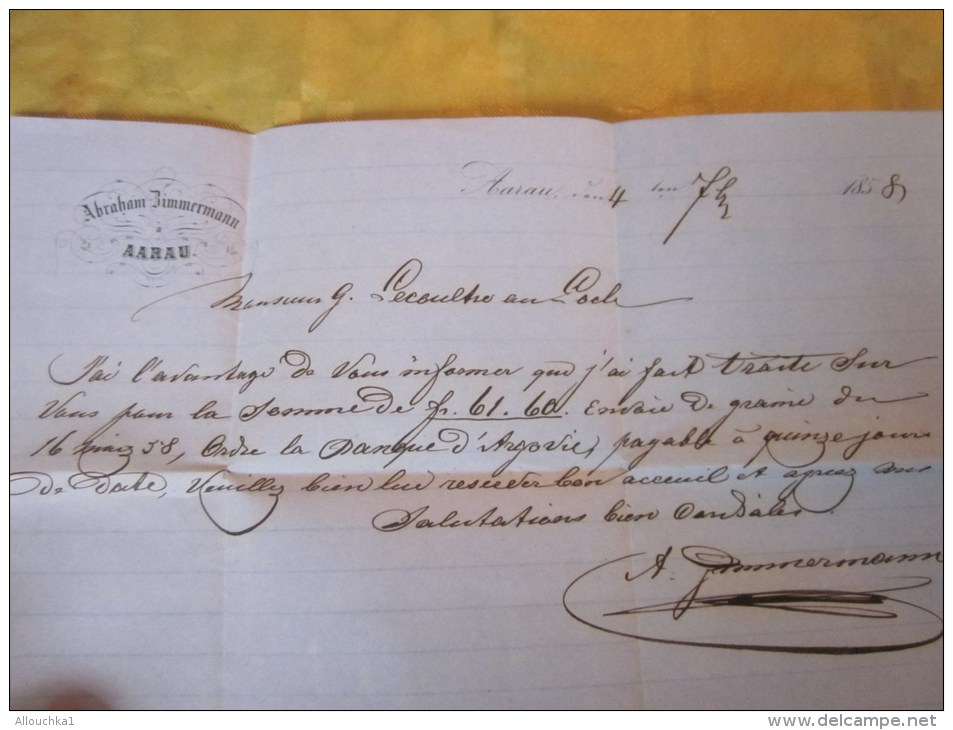 Abraham Zimmermann
à
AARAU.
Aarau, den 4 ten 7b 1858
Monsieur G. Lecoultre au Locle
J'ai l'avantage de Vous informer que j'ai fait traite sur
Vous pour la Somme de fr. 61.60. Envoie de graine du
16 mars 58, Ordre la Banque d'Argovie, payable à quinze jours
De Date, Veuillez bien lui reserver bon acceuil et agreez mes
Salutations bien Cordiales
A. Zimmermann
Allouchka1
www.delcampe.net